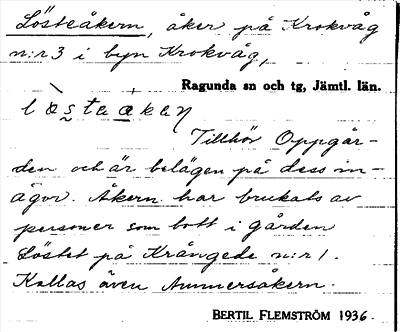 Löståkern, åker på Krokvåg
n:r 3 i byn Krokvåg,
Ragunda sn och tg, Jämtl. län.
Tillhör Oppgår-
den och är belägen på dess in-
ägor. Åkern har brukats av
personer som bott i gården
Löstet på Krångede n:r 1.
Kallas även Ammersåkern.
BERTIL FLEMSTRÖM 1936.